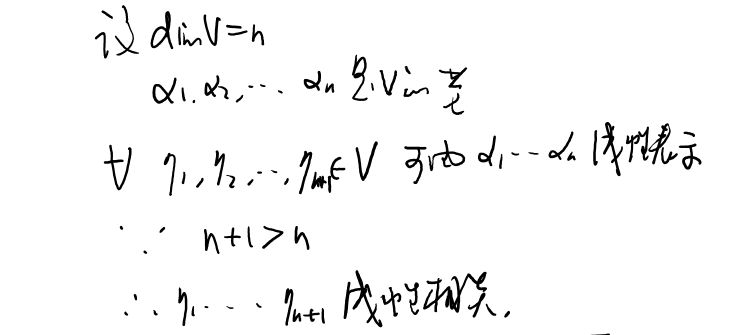 设 dimV=n
α1,α2,… αn 是V的基
∀ η1,η2,…,ηn+1∈V 可由 α1…αn 线性表示
∵ n+1>n
∴ η1…ηn+1 线性相关.